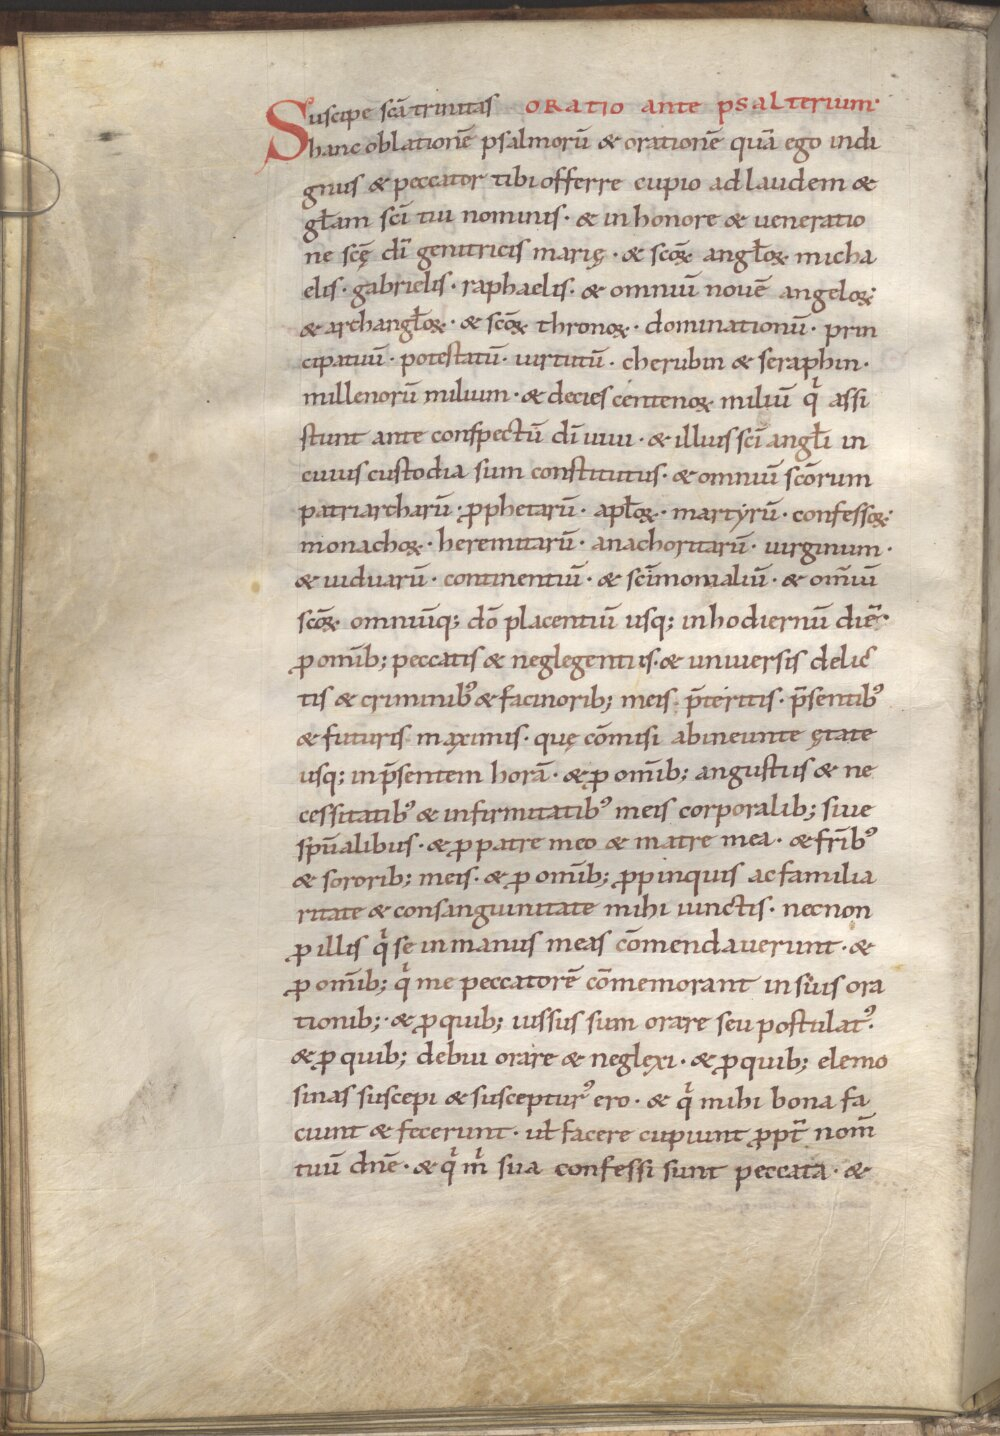 Suscipe scā trinitas ORATIO ANTE PSALTERIUM·
hanc oblationē psalmorū & orationē quā ego indi
gnus & peccator tibi offerre cupio ad laudem &
gl̄am sc̄i tui nominis· & in honore & ueneratio
ne sc̄ę dī genitricis marię· & sc̄oꝝ angl̄oꝝ micha
elis· gabrielis· raphaelis· & omniū nouē angeloꝝ
& archangl̄oꝝ· & sc̄oꝝ thronoꝝ· dominationū· prin
cipatuū· potestatū· uirtutū· cherubin & seraphin·
millenorū milium· & decies centenoꝝ miliū qͥ assi
stunt ante conspectū dī uiui· & illius sc̄i angl̄i in
cuius custodia sum constitutus· & omniū sc̄orum
patriarcharū· ꝓphetarū· apl̄oꝝ· martyrū· confessoꝝ·
monachoꝝ· heremitarū· anachoritarū· uirginum·
& uiduarū· continentiū· & sc̄imonialiū· & om̄iū
sc̄oꝝ omniūq; dō placentiū usq; in hodiernū diē·
ꝓ omīb; peccatis & neglegentiis· & uniuersis delic
tis & criminibꝰ & facinorib; meis p̄teritis· p̄sentibꝰ
& futuris maximis· quę cōmisi ab ineunte ętate
usq; in p̄sentem horā· & ꝓ omīb; angustiis & ne
cessitatibꝰ & infirmitatibꝰ meis corporalib; siue
spūalibus· & ꝓ patre meo & matre mea· & fr̄ibꝰ
& sororib; meis· & ꝓ omīb; ꝓpinquis ac familia
ritate & consanguinitate mihi iunctis· necnon
ꝓ illis qͥ se in manus meas cōmendauerunt· &
ꝓ omīb; qͥ me peccatorē cōmemorant in suis ora
tionib;· & ꝓ quib; iussus sum orare seu postulatꝰ·
& ꝓ quib; debui orare & neglexi· & ꝓ quib; elemo
sinas suscepi & suscepturꝰ ero· & qͥ mihi bona fa
ciunt & fecerunt· ul̄ facere cupiunt ꝓpt̄ nom̄
tuū dn̄e· & qͥ mͥ sua confessi sunt peccata· &